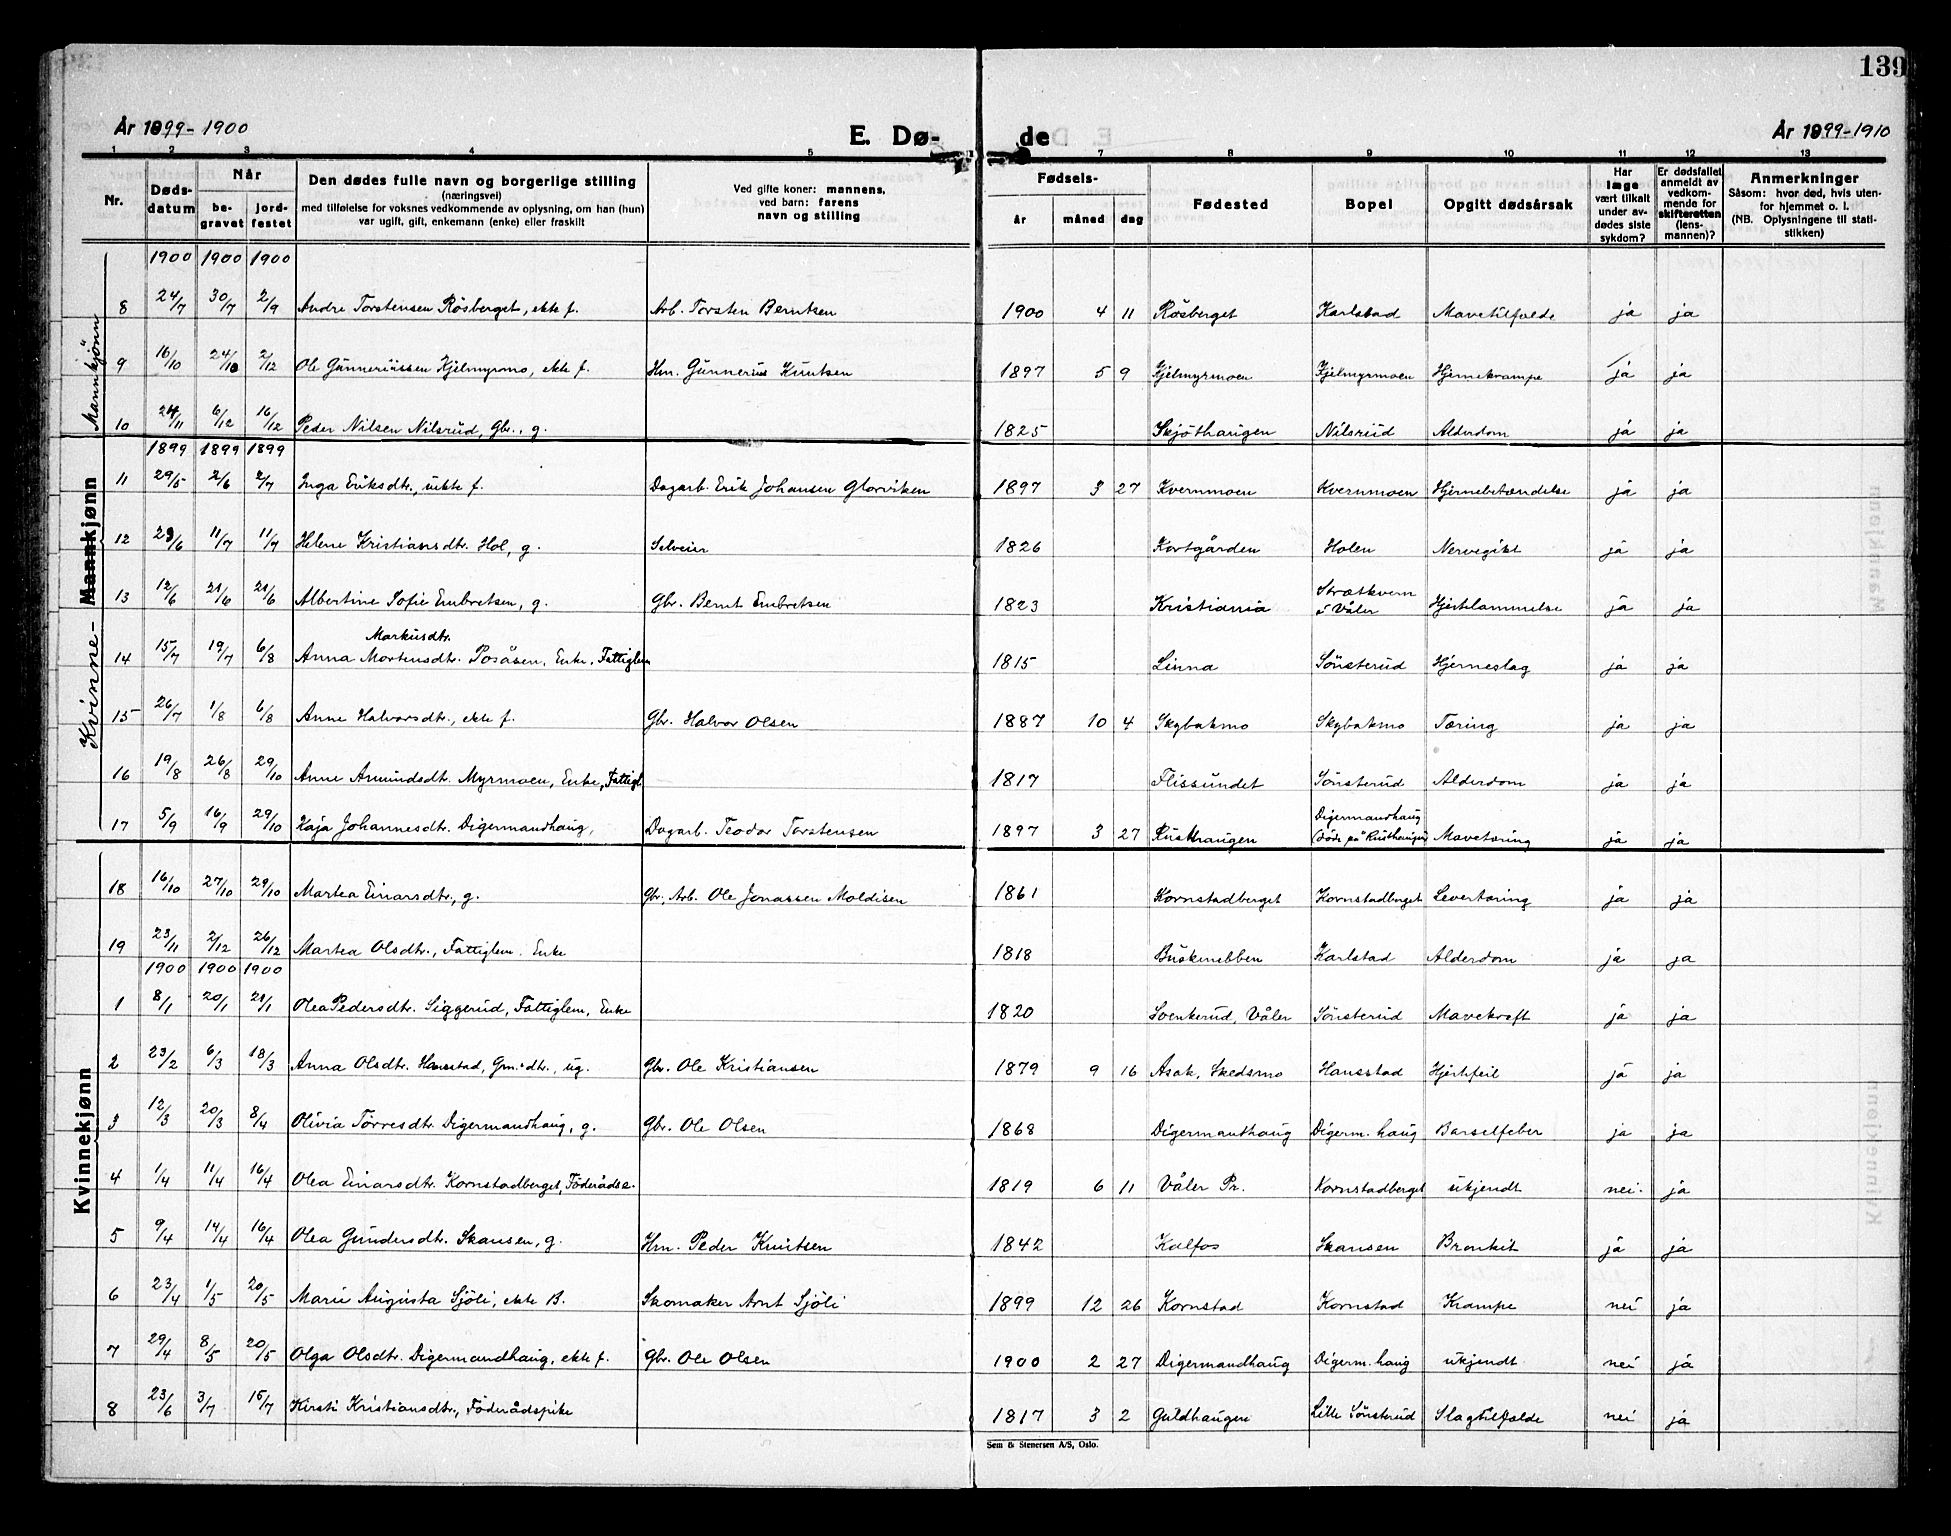 139
År 1899-1900 E. Dø- de År 1899-1910
1 2 3 4 5 7 8 9 10 11 12 13
Nr. Dødsdatum Når begravet jordfestet Den dødes fulle navn og borgerlige stilling (næringsvei) med tilføielse for voksnes vedkommende av oplysning, om han (hun) var ugift, gift, enkemann (enke) eller fraskilt Ved gifte koner: mannens, ved barn: farens navn og stilling Fødsels- år måned dag Fødested Bopel Opgitt dødsårsak Har læge vært tilkalt under avdødes siste sykdom? Er dødsfallet anmeldt av vedkommende for skifteretten (lensmannen)? Anmerkninger Såsom: hvor død, hvis utenfor hjemmet o. l. (NB. Oplysningene til statistikken)
Mannkjønn
1900 1900 1900
8 24/7 30/7 2/9 Andre Torstensen Rösberget, ekte f. Arb. Torsten Berntsen 1900 4 11 Rösberget Karlstad Mavetilfelde ja ja
9 16/10 24/10 2/12 Ole Gunneriussen Kjelmyrmo, ekte f. Hm. Gunnerius Knutsen 1897 5 9 Kjelmyrmoen Kjelmyrmoen Hjernekrampe ja ja
10 24/11 6/12 16/12 Peder Nilsen Nilsrud, Gbr., g. 1825 Skjöthaugen Nilsrud Alderdom ja ja
Kvinne- Mannkjønn
1899 1899 1899
11 29/5 2/6 2/7 Inga Eriksdtr., uekte f. Dagarb. Erik Johansen Glorviken 1897 3 27 Kvernmoen Kvernmoen Hjernebetændelse ja ja
12 29/6 11/7 11/7 Helene Kristiansdtr. Hol, g. Selveier 1826 Kortgården Holen Nervegikt ja ja
13 12/6 21/6 21/6 Albertine Sofie Embretsen, g. Gbr. Bernt Embretsen 1823 Kristiania Strætkvern i Våler Hjertelammelse ja ja
Markusdtr.
14 15/7 19/7 6/8 Anna Mortensdtr. Posåsen, Enke, Fattiglem 1815 Linna Sönsterud Hjerneslag ja ja
15 26/7 1/8 6/8 Anne Halvorsdtr., ekte f. Gbr. Halvor Olsen 1887 10 4 Skybakmo Skybakmo Tæring ja ja
16 19/8 26/8 29/10 Anne Amundsdtr. Myrmoen, Enke, Fattigl 1817 Flissundet Sönsterud Alderdom ja ja
17 5/9 16/9 29/10 Kaja Johannesdtr. Digermandhaug, Dagarb. Teodor Torstensen 1897 3 27 Rusthaugen Digermandhaug (döde på Rusthaugen Mavetæring ja ja
18 16/10 27/10 29/10 Martea Einarsdtr., g. Gbr., Arb. Ole Jonassen Moldisen 1861 Kornstadberget Kornstadberget Levertæring ja ja
19 23/11 2/12 26/12 Martea Olsdtr., Fattiglem. Enke 1818 Buskenebben Karlstad Alderdom ja ja
1900 1900 1900
Kvinnekjønn
1 8/1 20/1 21/1 Olea Pedersdtr. Siggerud, Fattiglem, Enke 1820 Svenkerud, Våler Sönsterud Mavekreft ja ja
2 23/2 6/3 18/3 Anna Olsdtr. Hanstad, Gm.dtr., ug. Gbr. Ole Kristiansen 1879 9 16 Asak, Skedsmo Hansstad Hjertefeil ja ja
3 12/3 20/3 8/4 Olivia Törresdtr. Digermandhaug, g. Gbr. Ole Olsen 1868 Digermanthaug Digerm. haug Barselfeber ja ja
4 1/4 11/4 16/4 Olea Einarsdtr. Kornstadberget, Föderådse. 1819 6 11 Våler Pr. Kornstadberget ukjendt nei. ja
5 9/4 14/4 16/4 Olea Gundersdtr. Skansen, g. Hm. Peder Knutsen 1842 Kalfos Skansen Bronkit ja ja
6 23/4 1/5 20/5 Marie Augusta Sjöli, ekte B. Skomaker Arnt Sjöli 1899 12 26 Kornstad Kornstad Krampe nei ja
7 29/4 8/5 20/5 Olga Olsdtr. Digermandhaug, ekte f. Gbr. Ole Olsen 1900 2 27 Digermandhaug Digerm. haug ukjendt nei ja
8 23/6 3/7 15/7 Kirsti Kristiansdtr., Föderådspike 1817 3 2 Guldhaugen Lille Sönsterud Slagtilfælde nei ja
Sem & Stenersen A/S, Oslo.